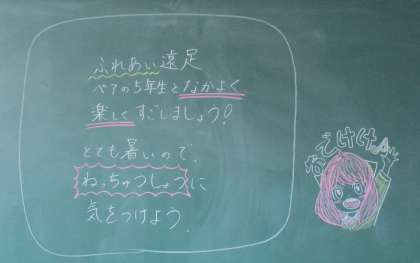 ふれあい遠足
ペアの5年生となかよく
楽しくすごしましょう!
とても暑いので、
ねっちゅうしょうに
気をつけよう。